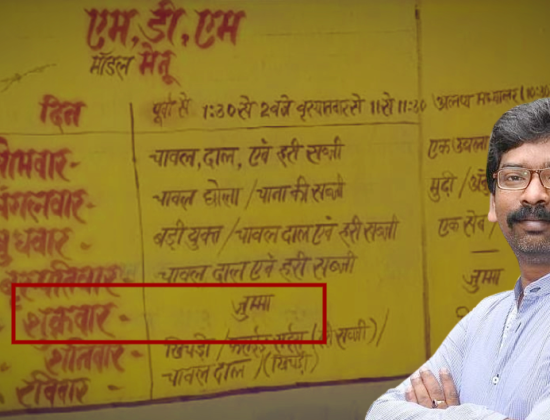 एम, डी, एम
मॉडल मेनू
दिन पूर्वा से 1:30 से 2 बजे वृहस्पतवार से 11 से 11:30 अल्प (10:30
सोमवार- चावल, दाल, एवं हरी सब्जी एक उबला
मंगलवार- चावल छोला / चाना की सब्जी मुढ़ी /
बुधवार- बड़ी युक्त / चावल दाल एवं हरी सब्जी एक सेव /
चावल दाल एवं हरी सब्जी
शुक्रवार- जुम्मा जुम्मा
शनिवार- खिचड़ी / सब्जी) /
रविवार- चावल दाल / (खिचड़ी)